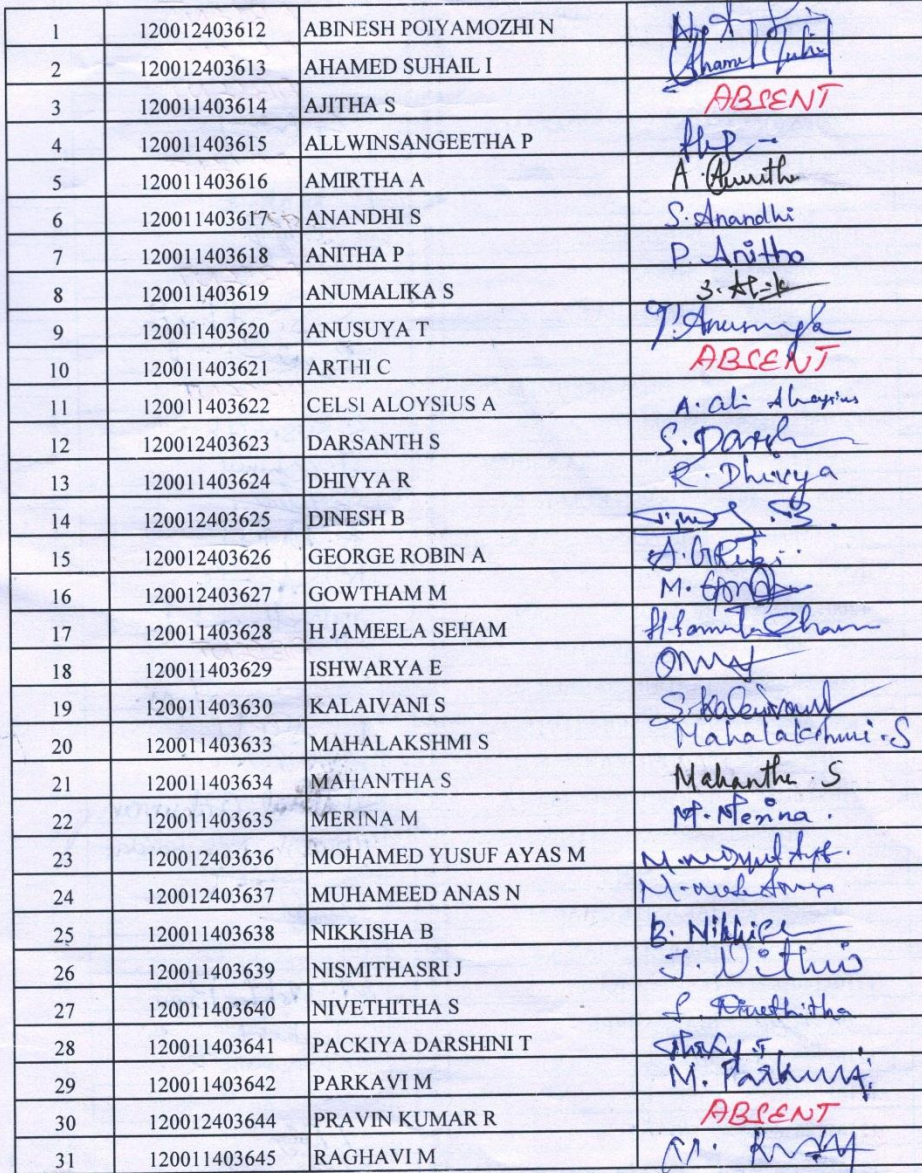 1 120012403612 ABINESH POIYAMOZHI N
2 120012403613 AHAMED SUHAIL I
3 120011403614 AJITHA S ABSENT
4 120011403615 ALLWINSANGEETHA P
5 120011403616 AMIRTHA A A.
6 120011403617 ANANDHI S S. Anandhi
7 120011403618 ANITHA P P. Anitha
8 120011403619 ANUMALIKA S
9 120011403620 ANUSUYA T
10 120011403621 ARTHI C ABSENT
11 120011403622 CELSI ALOYSIUS A A.
12 120012403623 DARSANTH S S.
13 120011403624 DHIVYA R R. Dhivya
14 120012403625 DINESH B
15 120012403626 GEORGE ROBIN A
16 120012403627 GOWTHAM M M.
17 120011403628 H JAMEELA SEHAM
18 120011403629 ISHWARYA E
19 120011403630 KALAIVANI S
20 120011403633 MAHALAKSHMI S Mahalakshmi.S
21 120011403634 MAHANTHA S Mahantha.S
22 120011403635 MERINA M M. Merina.
23 120012403636 MOHAMED YUSUF AYAS M
24 120012403637 MUHAMEED ANAS N
25 120011403638 NIKKISHA B B.
26 120011403639 NISMITHASRI J J.
27 120011403640 NIVETHITHA S Nivethitha
28 120011403641 PACKIYA DARSHINI T
29 120011403642 PARKAVI M M.
30 120012403644 PRAVIN KUMAR R ABSENT
31 120011403645 RAGHAVI M